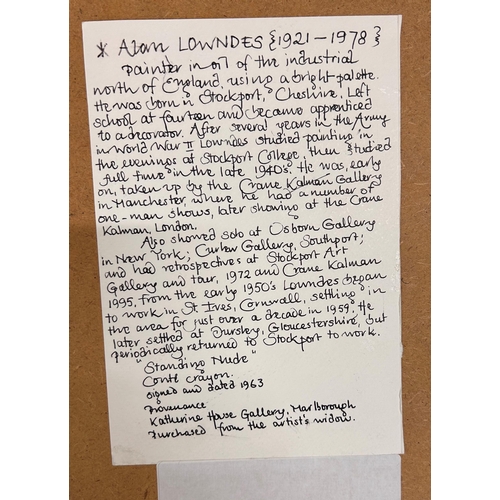 * Alan LOWNDES {1921-1978}
Painter in oil of the industrial
north of England, using a bright palette.
He was born in Stockport, Cheshire. Left
school at fourteen and became apprenticed
to a decorator. After several years in the Army
in World War II Lowndes studied painting in
the evenings at Stockport College, then studied
full time in the late 1940's. He was, early
on, taken up by the Crane Kalman Gallery
in Manchester, where he had a number of
one-man shows, later showing at the Crane
Kalman, London.
Also showed solo at Osborn Gallery
in New York; Curlew Gallery, Southport;
and had retrospectives at Stockport Art
Gallery and tour, 1972 and Crane Kalman
1995, from the early 1950's Lowndes began
to work in St Ives, Cornwall, settling in
the area for just over a decade in 1959. He
later settled at Dursley, Gloucestershire, but
periodically returned to Stockport to work.
"Standing Nude"
Conté crayon.
signed and dated 1963
Provenance
Katherine House Gallery, Marlborough
Purchased from the artist's widow.